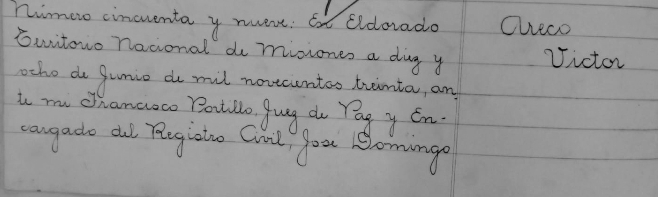 Número cincuenta y nueve: En Eldorado
Territorio Nacional de Misiones a diez y
ocho de Junio de mil novecientos treinta, an-
te mi Francisco Portillo, Juez de Paz y En-
cargado del Registro Civil, Jose Domingo
Areco
Victor